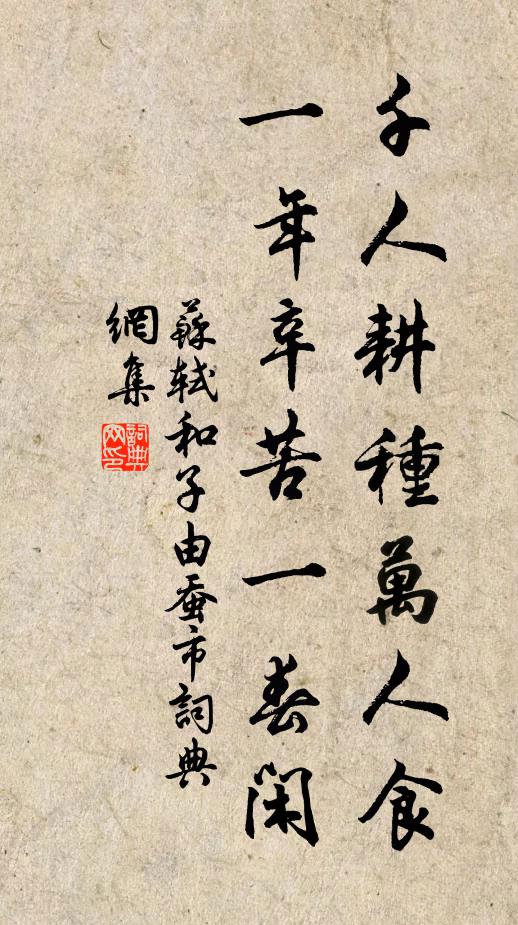 千人耕種萬人食
一年辛苦一春閑
蘇軾和子由蚕市詞典
網集
詞典
网印